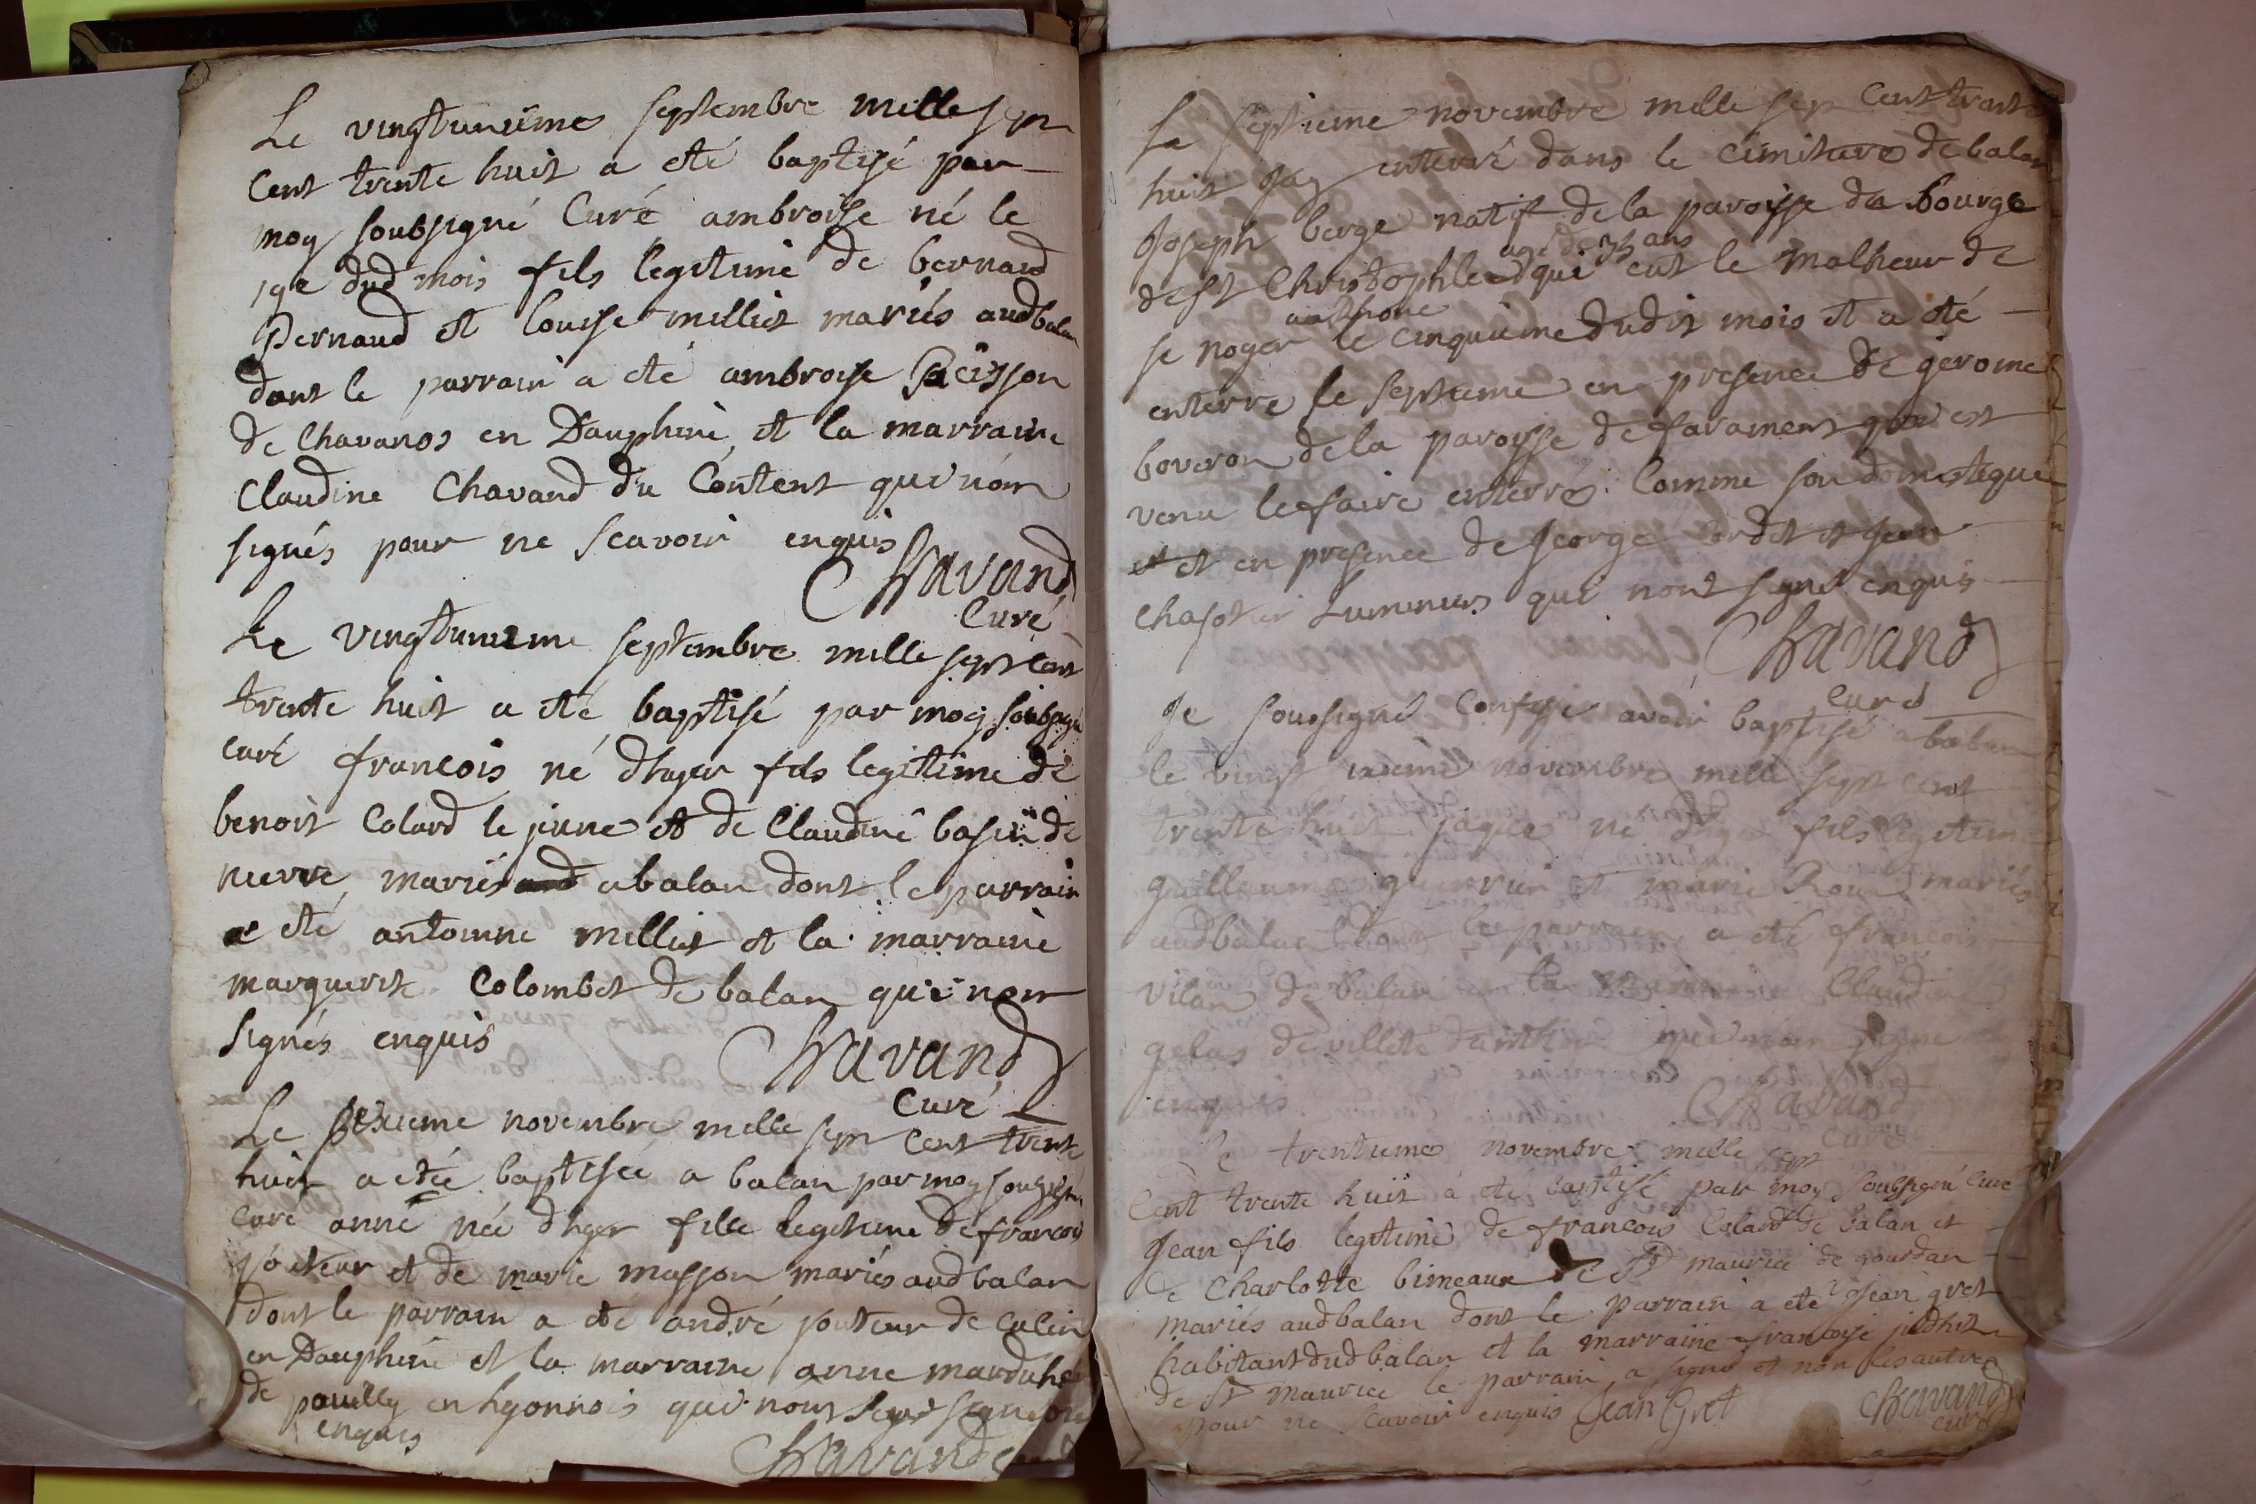 Le vingtunieme septembre mille sept
cent trente huit a eté baptisé par
moy soubsigné Curé ambroise né le
19e dud mois fils legitime de bernard
Pernaud et louise milliet mariés audbalan
dont le parrain a eté ambroise
de Chavanos en Dauphiné et la marraine
Claudine Chavand du Content qui n'ont
signés pour ne scavoir enquis
Chavand
Curé
Le vingtunieme septembre mille sept cent
trente huit a eté baptisé par moy soubsigné
curé francois né d'hyer fils legitime de
benoit Colard le jeune et de Claudine basin de
nievre mariés abalan dont le parrain
a eté antoinne milliet et la marraine
marguerite Colombet de balan qui n'ont
signés enquis
Chavand
Curé
Le novembre mille sept cent trente
huit a etée baptisée a balan par moy soubsigné
curé anne née d'hyer fille legitime de francois
jouteur et de marie masson mariés audbalan
dont le parrain a eté andré jouteur de Culin
en Dauphiné et la marraine anne
de pouilly en lyonnois qui n'ont signé
enquis
Chavand curé
Le septieme novembre mille sept Cent trente
huit jay enterré dans le cimitiere de balan
Joseph berge natif de la paroisse da bourge
agé de 35 ans
de st Christophle qui eut le malheur de
au Rhone
se noyer le cinquieme dudit mois et a eté
enterre le septieme en presence de gerome
boveron de la paroisse de faramens qui est
venu le faire enterré Comme son domestique
et en presence de george et jean
Chapotier Lumineurs qui n'ont signé enquis
Chavand
Curé
Je soussigné Confesse avoir baptisé a balan
le vingt novembre mille sept cent
trente huit jaques né fils legitime
guillaume guerrier et marie Roux mariés
audbalan le parrain a eté francois
vilan de balan la marraine Claudine
gelas de villete
enquis
Chavand
curé
Le trentieme novembre mille sept
Cent trente huit a eté baptisé par moy soubsigné Curé
Jean fils legitime de francois Colard de balan et
de Charlotte bimeaux de st maurice de gourdan
mariés audbalan dont le parrain a eté Jean gret
habitant dud balan et la marraine francoise
de st maurice le parrain a signé et non les autres
pour ne scavoir enquis Jean Gret
Chavand
curé